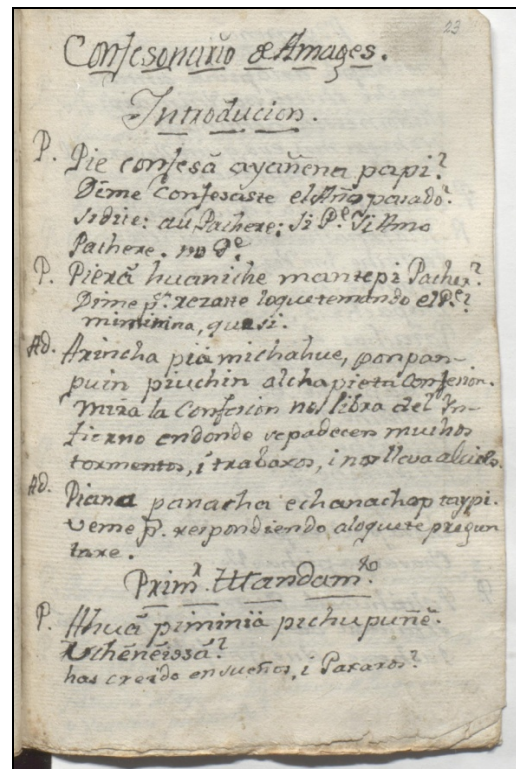 23
Confesonario de Amages.
Introducion.
P. Pie confesã ayañena papi?
Dime confesaste el Año pasado?
si dice: au Pachere: si Pe. Si Amo
Pachere. no Pe.
P. Pierã huaniche mantepi Pacher?
Dime pr. rezaste loque temando el Pe.?
miminina, que si.
Ad. Arincha piã michahue, panpan-
puin piuchin alchapieta Confesion.
Mira la Confesion nos libra del In-
fierno endonde sepadecen muchos
tormentos, i trabaxos, i nos lleva alcielo.
Ad. Piana panacha echanachap taypi.
veme pr. respondiendo aloquete pregun
tare.
Primr. Mandamto.
P. Ahuã piminiã pichupuñẽ.
Uchẽnẽissã?
has creido ensueños, i Paxaros?